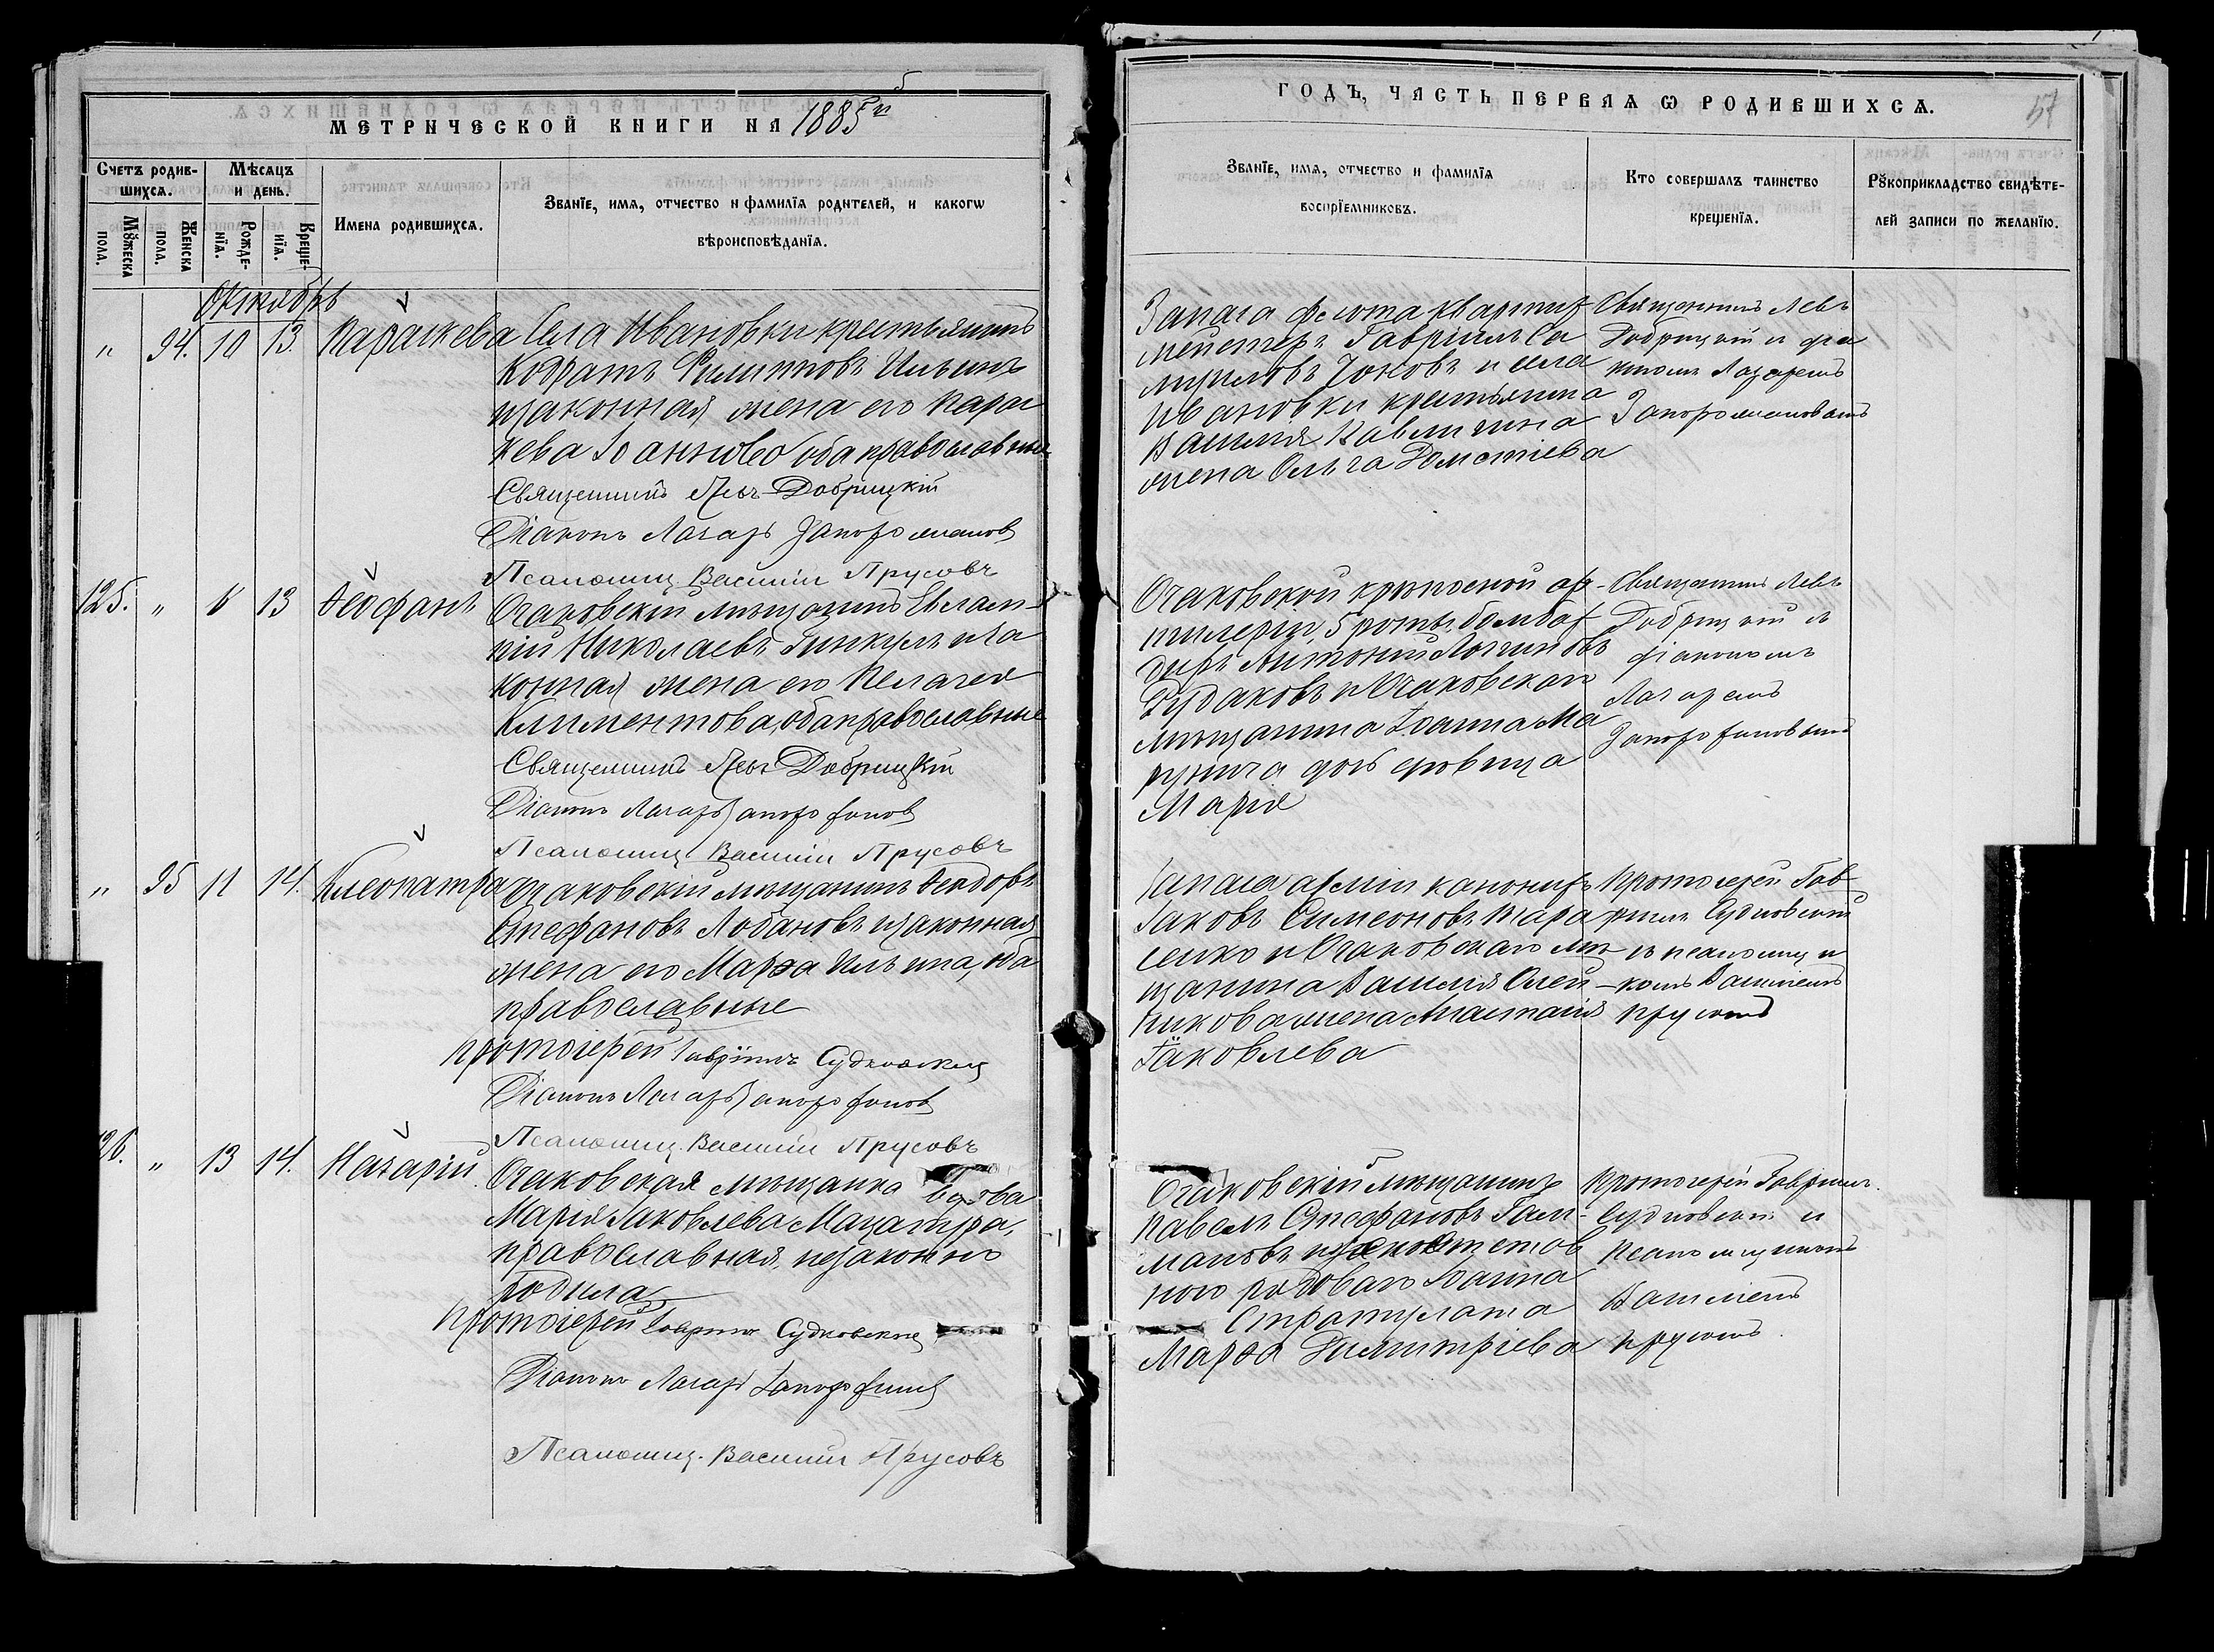 МЕТРИЧЕСКОЙ КНИГИ НА 1885й
Счетъ родив-
шихсѧ.
Мѣсѧцъ
и день.
Мꙋжеска
пола.
Женска
пола.
Рожде-
нїѧ.
Креще-
нїѧ.
Имена родившихсѧ.
Званїе, имѧ, отчество и фамилїѧ родителей, и какогѡ
вѣроисповѣданїѧ.
Октябрь
" 94. 10 13. Параскева
Села Ивановки крестьянинъ
Кодратъ Филипповъ Ильинъ
и законная жена его Парас
кева Іоаннова оба православные
Священникъ Левъ Добрицкій
Діаконъ Лазарь
Псаломщ. Василій Прусовъ
125. " 6 13 Ѳеофанъ
Очаковскій мѣщанинъ Евлам-
пій Николаевъ Гинкулъ и за
конная жена его Пелагея
Климентова, оба православные
Священникъ Левъ Добрицкій
Діаконъ Лазарь
Псаломщ. Василій Прусовъ
" 95 11 14. Клеопатра
Очаковскій мѣщанинъ Ѳеодоръ
Стефановъ Лобановъ и законная
жена его Марѳа Ильина, оба
православные
Протоіерей Гавріилъ Судковскій
Діаконъ Лазарь
Псаломщ. Василій Прусовъ
126. " 13 14. Назарій
Очаковская мѣщанка вдова
Марія Іаковлева Мацатура,
православная, незаконно
родила
Протоіерей Гавріилъ Судковскій
Діаконъ Лазарь
Псаломщ. Василій Прусовъ
ГОДЪ, ЧАСТЬ ПЕРВАѦ Ѡ РОДИВШИХСѦ.
57
Званїе, имѧ, отчество и фамилїѧ
воспрїемниковъ.
Кто совершалъ таинство
крещенїѧ.
Рꙋкоприкладство свидѣте-
лей записи по желанїю.
Запаса флота квартир
мейстеръ Гавріилъ Са
муиловъ и села
Ивановки крестьянина
Василія
жена Ольга
Священникъ Левъ
Добрицкій и діа
кономъ Лазаремъ
Очаковской крѣпостной ар-
тилеріи, 5 роты, бомбар
диръ Антоній Логиновъ
Рудаковъ и Очаковскаго
мѣщанина Іоанна Ма
дочь дѣвица
Марія
Священникъ Левъ
Добрицкій и
діакономъ
Лазаремъ
Запаса арміи канониръ
Іаковъ Симеоновъ Тара
сенко и Очаковскаго мѣ
щанина Василія Олей-
никова жена Анастасія
Іаковлева
Протоіерей Гав
ріилъ Судковскій
съ псаломщи
комъ Василіемъ
Прусовымъ
Очаковскій мѣщанинъ
Павелъ Стефановъ
и
рядоваго Іоанна
Стратулата
Марѳа Димитріева
Протоіерей Гавріилъ
Судковскій и
псаломщикомъ
Василіемъ
Прусовымъ.